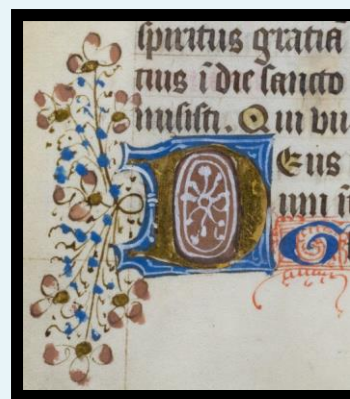 spiritus gratia
tuus i die sancto
misisti. Qui vi
Deus
um i